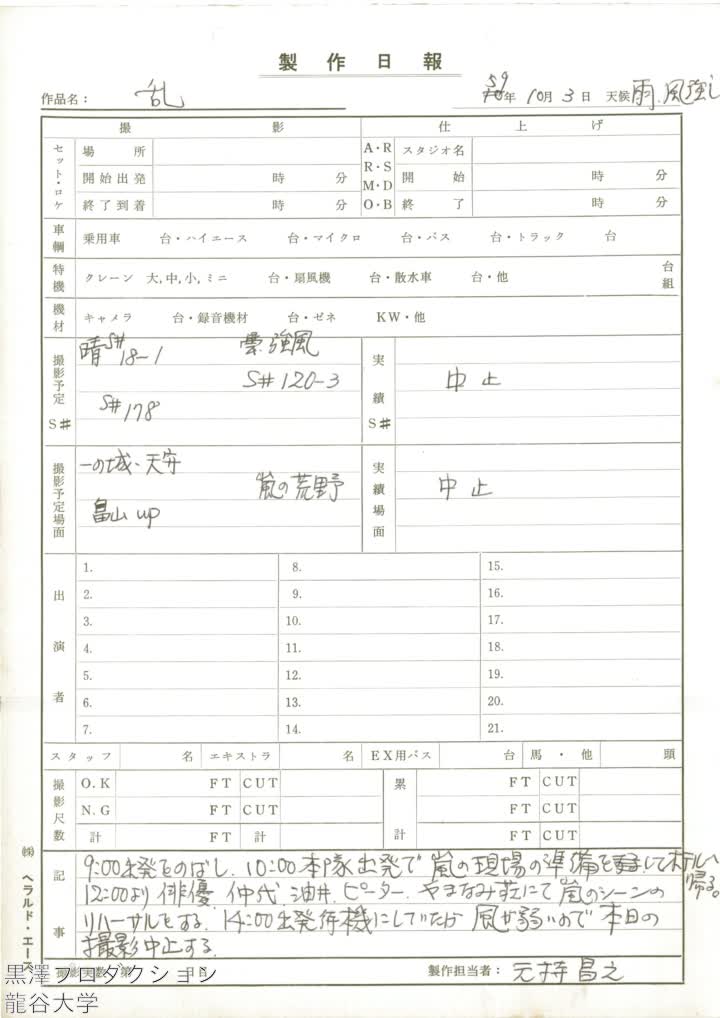 製作日報
作品名： 乱
59年 10月 3日 天候 雨、風強し
撮影 仕上げ
セット・ロケ
場所
開始出発 時 分
終了到着 時 分
A・R R・S M・D O・B
スタジオ名
開始 時 分
終了 時 分
車輌 乗用車 台・ハイエース 台・マイクロ 台・バス 台・トラック 台
特機 クレーン 大,中,小,ミニ 台・扇風機 台・散水車 台・他 台組
機材 キャメラ 台・録音機材 台・ゼネ KW・他
撮影予定 S#
晴 S#18-1 曇.強風
S#120-3
S#178
実績 S#
中止
撮影予定場面
一の城・天守
嵐の荒野
畠山up
実績場面
中止
出演者
1. 8. 15.
2. 9. 16.
3. 10. 17.
4. 11. 18.
5. 12. 19.
6. 13. 20.
7. 14. 21.
スタッフ 名 エキストラ 名 EX用バス 台 馬・他 頭
撮影尺数
O.K FT CUT 累 FT CUT
N.G FT CUT FT CUT
計 FT 計 計 FT 計
記事
9:00出発をのばし、10:00本隊出発で嵐の現場の準備をしてホテルへ帰る。
12:00より俳優、仲代、油井、ピーター、やまなみ荘にて嵐のシーンの
リハーサルをする。14:00出発待機にしていたが風が弱いので本日の
撮影中止する。
製作担当者： 元持昌之
㈱ ヘラルド・エース
黒澤プロダクション
龍谷大学